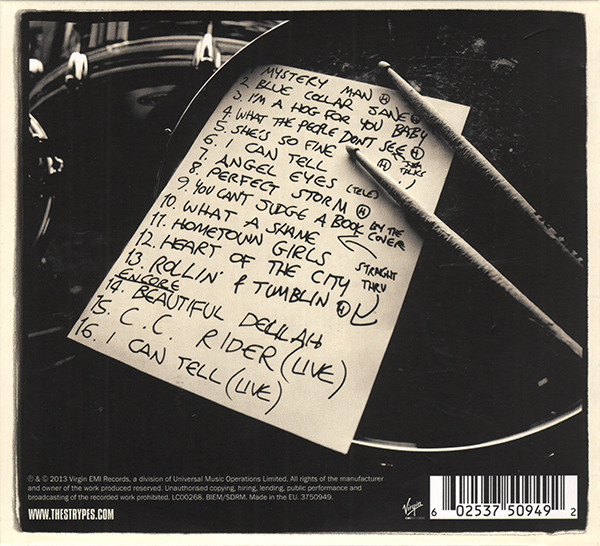 1. MYSTERY MAN H
2. BLUE COLLAR JANE H
3. I'M A HOG FOR YOU BABY
4. WHAT THE PEOPLE DON'T SEE H
5. SHE'S SO FINE
6. I CAN TELL H TALKS
7. ANGEL EYES (TELE)
8. PERFECT STORM H
9. YOU CAN'T JUDGE A BOOK BY THE COVER
10. WHAT A SHAME
11. HOMETOWN GIRLS STRAIGHT
12. HEART OF THE CITY THRU
13. ROLLIN' & TUMBLIN H
ENCORE
14. BEAUTIFUL DELILAH
15. C.C. RIDER (LIVE)
16. I CAN TELL (LIVE)
℗ & © 2013 Virgin EMI Records, a division of Universal Music Operations Limited. All rights of the manufacturer
and owner of the work produced reserved. Unauthorised copying, hiring, lending, public performance and
broadcasting of the recorded work prohibited. LC00268. BIEM/SDRM. Made in the EU. 3750949.
WWW.THESTRYPES.COM
Virgin
6 02537 50949 2